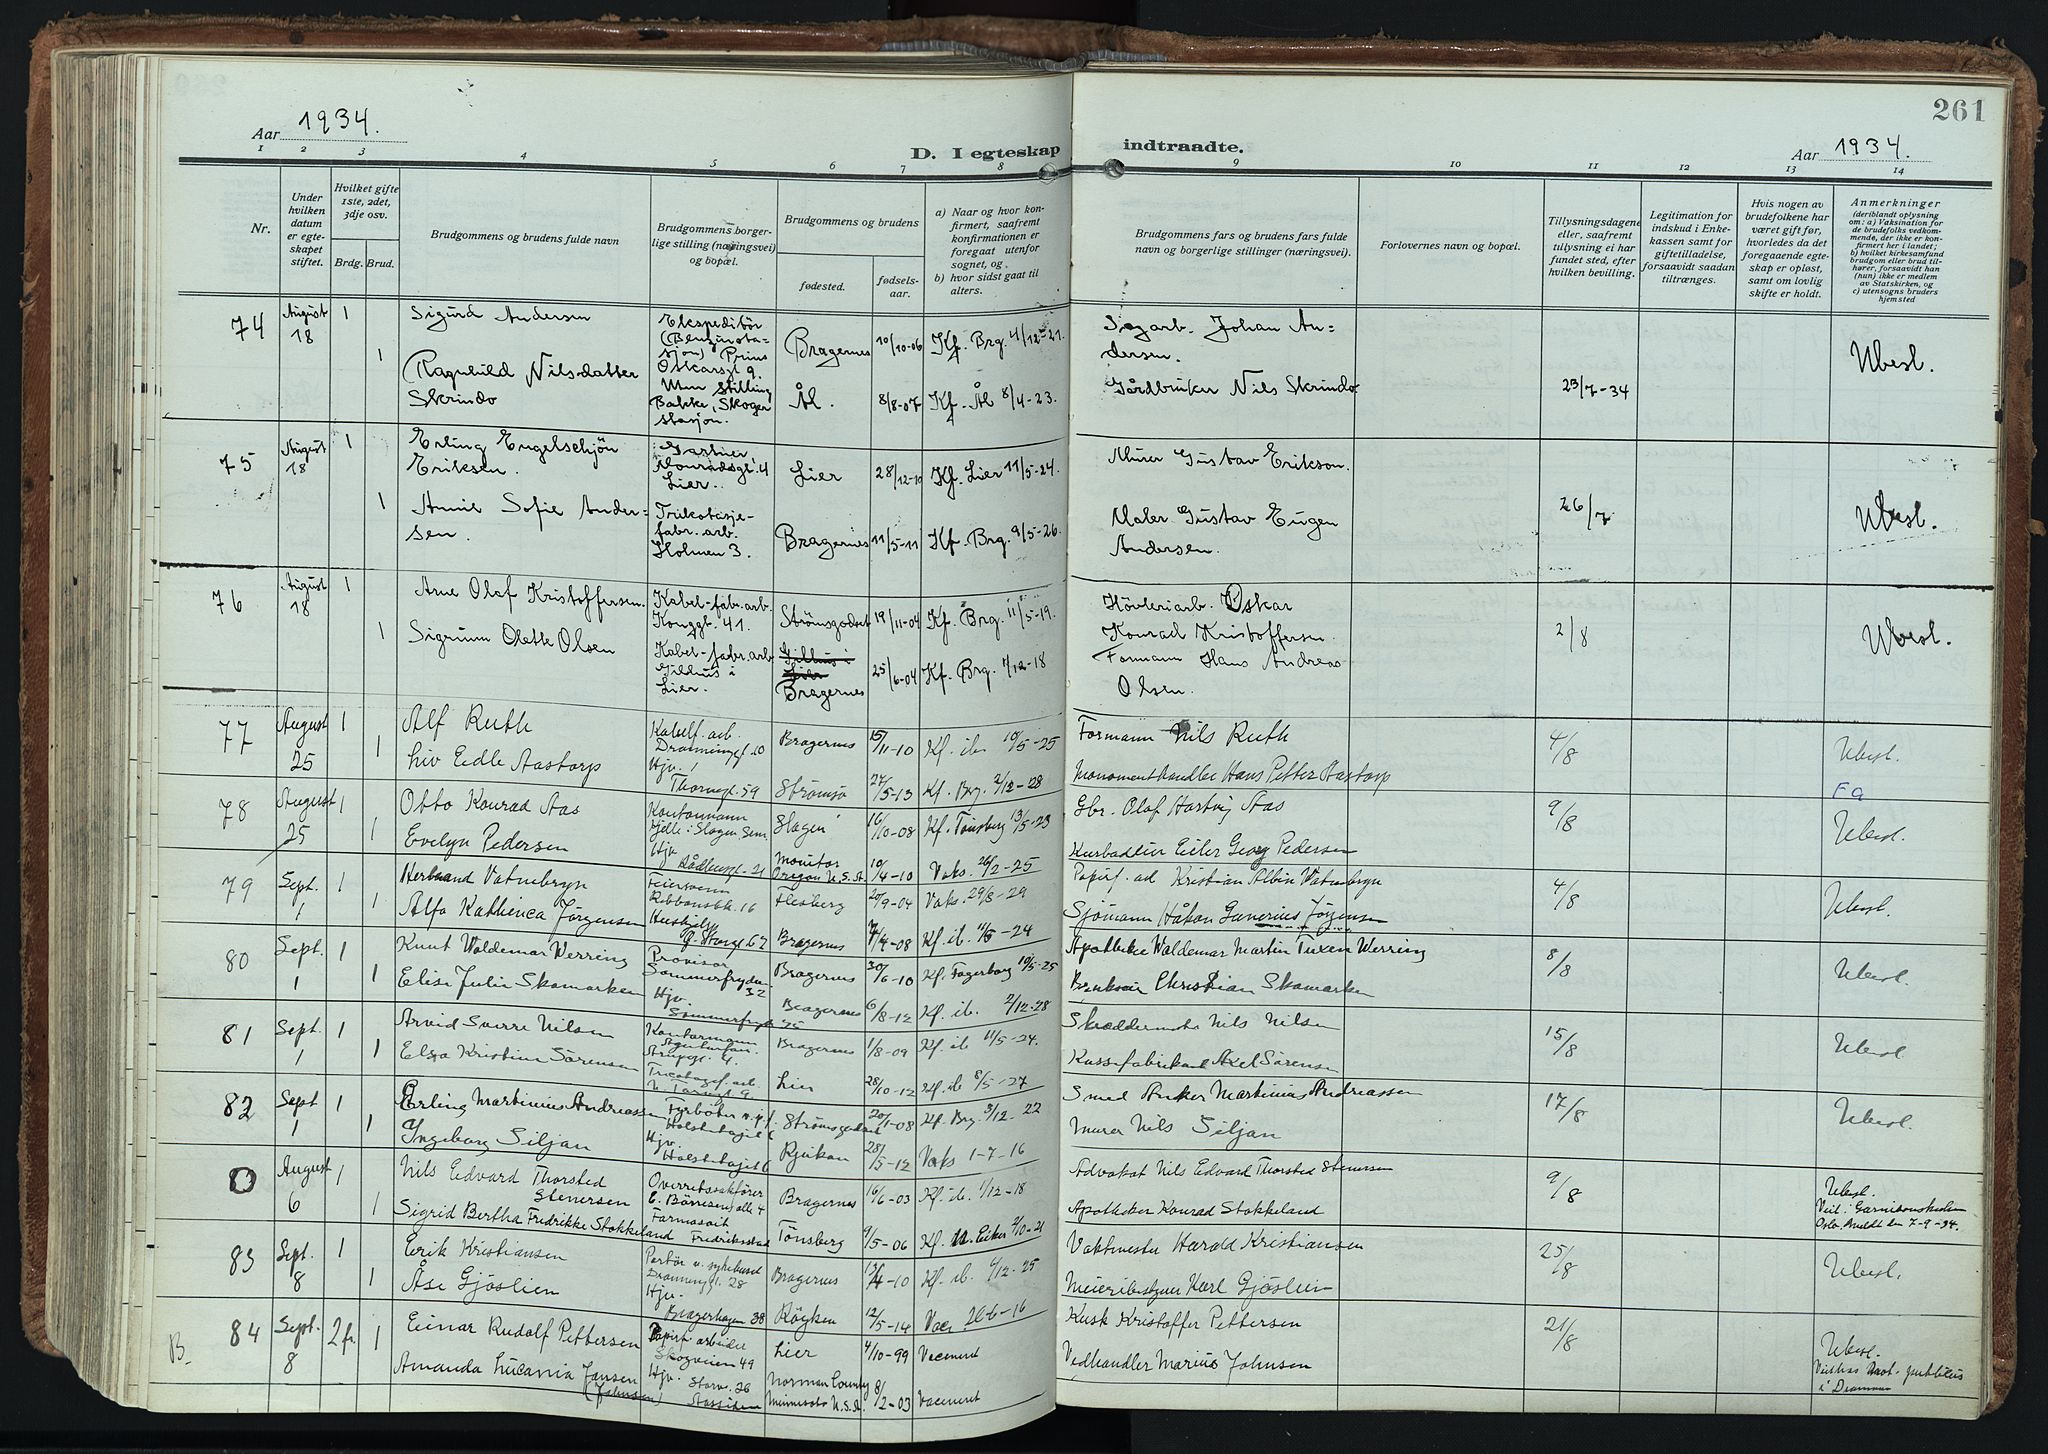 261
Aar 1934.
D. I egteskap indtraadte.
Aar 1934.
1 2 3 4 5 6 7 8 9 10 11 12 13 14
Nr.
Under hvilken datum er egteskapet stiftet.
Hvilket gifte 1ste, 2det, 3dje osv.
Brdg. Brud.
Brudgommens og brudens fulde navn
Brudgommens borgerlige stilling (næringsvei) og bopæl.
Brudgommens og brudens
fødested.
fødselsaar.
a) Naar og hvor konfirmert, saafremt konfirmationen er foregaat utenfor sognet, og
b) hvor sidst gaat til alters.
Brudgommens fars og brudens fars fulde navn og borgerlige stillinger (næringsvei).
Forlovernes navn og bopæl.
Tillysningsdagene eller, saafremt tillysning ei har fundet sted, efter hvilken bevilling.
Legitimation for indskud i Enkekassen samt for giftetilladelse, forsaavidt saadan tiltrænges.
Hvis nogen av brudefolkene har været gift før, hvorledes da det foregaaende egteskap er opløst, samt om lovlig skifte er holdt.
Anmerkninger
(deriblandt oplysning om: a) Vaksination for de brudefolks vedkommende, der ikke er konfirmert her i landet; b) hvilket kirkesamfund brudgom eller brud tilhører, forsaavidt han (hun) ikke er medlem av Statskirken, og c) utensogns bruders hjemsted
74 August 18 1 Sigurd Andersen Ekspeditör (Bensinstasjon) Prins Oskarsgt 9. Bragernes 10/10-06 Kf. Brg. 4/12-21. Sagarb. Johan Andersen. Ubesl.
1 Ragnhild Nilsdatter Skrindo Uten stilling Bakke, Skoger stasjon. Ål. 8/8-07 Kf. Ål 8/4-23. Gårdbruker Nils Skrindo 23/7-34
75 August 18 1 Erling Engelschjön Eriksen. Gartner Konradsgt. 4 Lier. Lier 28/12-10 Kf. Lier 11/5-24. Murer Gustav Erikson.
1 Annie Sofie Andersen. Trikotasjefabr. arb. Holmen 3. Bragernes 11/5-11 Kf. Brg. 9/5-26. Maler Gustav Eugen Andersen. 26/7 Ubesl.
76 August 18 1 Arne Olaf Kristoffersen. Kabel-fabr. arb. Konggt. 41. Strömsgodset 19/11-04 Kf. Brg. 11/5-19. Hövleriarb. Oskar Konrad Kristoffersen. 2/8 Ubesl.
1 Sigrunn Olette Olsen Kabel-fabr. arb Gilhus i Lier. Gilhus i Lier Bragernes 25/6-04 Kf. Brg. 1/12-18 Formann Hans Andreas Olsen.
77 August 25 1 Alf Ruth Kabelf. arb. Drammensgt. 10 Bragernes 15/11-10 Kf. ib. 10/5-25 Formann Nils Ruth 4/8 Ubesl.
1 Liv Eidle Aastorp Hjv. Thornegt. 59 Strömsö 27/5-13 Kf. Brg. 2/12-28 Monumenthandler Hans Petter Aastorp Fa
78 August 25 1 Otto Konrad Aas Kontormann Slagen Sem. Slagen 16/10-08 Kf. Tönsberg 13/5-23 Gbr. Olaf Hartvig Aas 9/8 Ubesl.
1 Evelyn Pedersen Hjv. Rådhusgt. 21 Monitor Oregon U.S.A. 10/4-10 Vaks. 26/2-25 Kurbadeier Eiler Georg Pedersen
79 Sept. 1 1 Herbrand Vatnebryn Feiersvenn Ribbonsbk. 16 Flesberg 20/9-04 Vaks. 29/8-29 Papirf. arb Kristian Albin Vatnebryn 4/8 Ubesl.
1 Alfa Kathinca Jørgensen Hushjelp g. Storgt. 62 Bragernes 7/4-08 Kf. ib. 11/5-24 Sjömann Håkon Gunerius Jørgensen
80 Sept. 1 1 Knut Waldemar Werring Provisor Sommerfryden 32 Bragernes 30/6-10 Kf. Fagerborg 10/5-25 Apotheker Waldemar Martin Tuxen Werring 8/8 Ubesl.
1 Elise Julie Skamarken Hjv. Sommerfryd 25 Bragernes 6/8-12 Kf. ib. 2/12-28 Christian Skamarken
81 Sept. 1 1 Arvid Sverre Nilsen Kontormann Bragernes 1/8-09 Kf. ib 11/5-24. Skreddermster Nils Nilsen 15/8 Ubesl.
1 Elsa Kristine Sörensen Tricotagef. arb. N. Torvgt 9 Lier 28/10-12 Kf. ib 8/5-27 Kassefabrikant Axel Sörensen
82 Sept 1 1 Erling Martinius Andreassen Fyrböter Strömsgodset 20/1-08 Kf. Brg. 3/12-22 Smed Anker Martinius Andreassen 17/8 Ubesl.
1 Ingeborg Siljan Hjv. Rjukan 28/5-12 Vaks 1-7-16 Murer Nils Siljan
0 August 6 1 Nils Edvard Thorsted Stenersen Overretssakfører E. Börresens alle 4 Bragernes 16/6-03 Kf. ib. 1/12-18 Advokat Nils Edvard Thorsted Stenersen 9/8 Ubesl.
1 Sigrid Bertha Fredrikke Stokkeland Farmasøit Fredriksstad Tönsberg 9/5-06 Kf. N. Eiker 2/10-21 Apotheker Konrad Stokkeland Viet i Garnisonskirken Oslo. Anmeldt den 7-9-34.
83 Sept. 8 1 Erik Kristiansen Portör v. sykehuset Drammensgt. 28 Bragernes 13/4-10 Kf. ib. 6/12-25 Vaktmester Harald Kristiansen 25/8 Ubesl.
1 Åse Gjöslien Hjv. Bragerhagen 38 Röyken 12/5-14 Vacc. 20-6-16 Meieribestyrer Karl Gjöslien
B. 84 Sept. 8 2 fr. Einar Rudolf Pettersen Papirf. arbeider Skogveien 49 Lier 4/10-99 Vaccineret Kusk Kristoffer Pettersen 21/8 Ubesl.
1 Amanda Lucania Jansen (Johnsen) Hjv. Storv. 26 Norman County Minnesota U.S.A. 8/2-03 Vaccineret Vedhandler Marius Johnsen Vielses not. publicus i Drammen